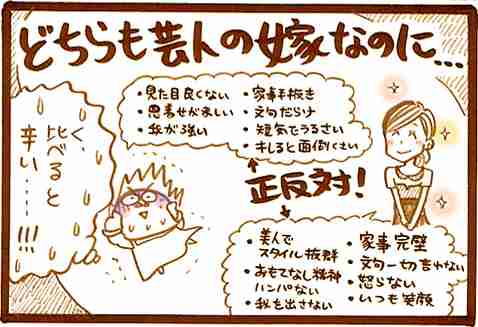 どちらも芸人の嫁なのに…
・見た目良くない
・恩着せがましい
・我が強い
・家事手抜き
・文句だらけ
・短気でうるさい
・キレると面倒くさい
正反対！
・美人で
スタイル抜群
・おもてなし精神
ハンパない
・我を出さない
・家事完璧
・文句一切言わない
・怒らない
・いつも笑顔
く、
比べると
辛い…!!!